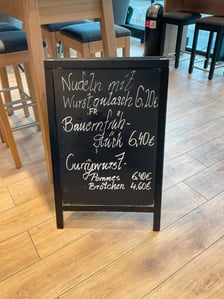 Nudeln mit
Wurstgulasch 6.20€
.FR
Bauernfrüh-
stück 6,40€
Currywurst-
Pommes 6,40€
Brötchen 4,60€